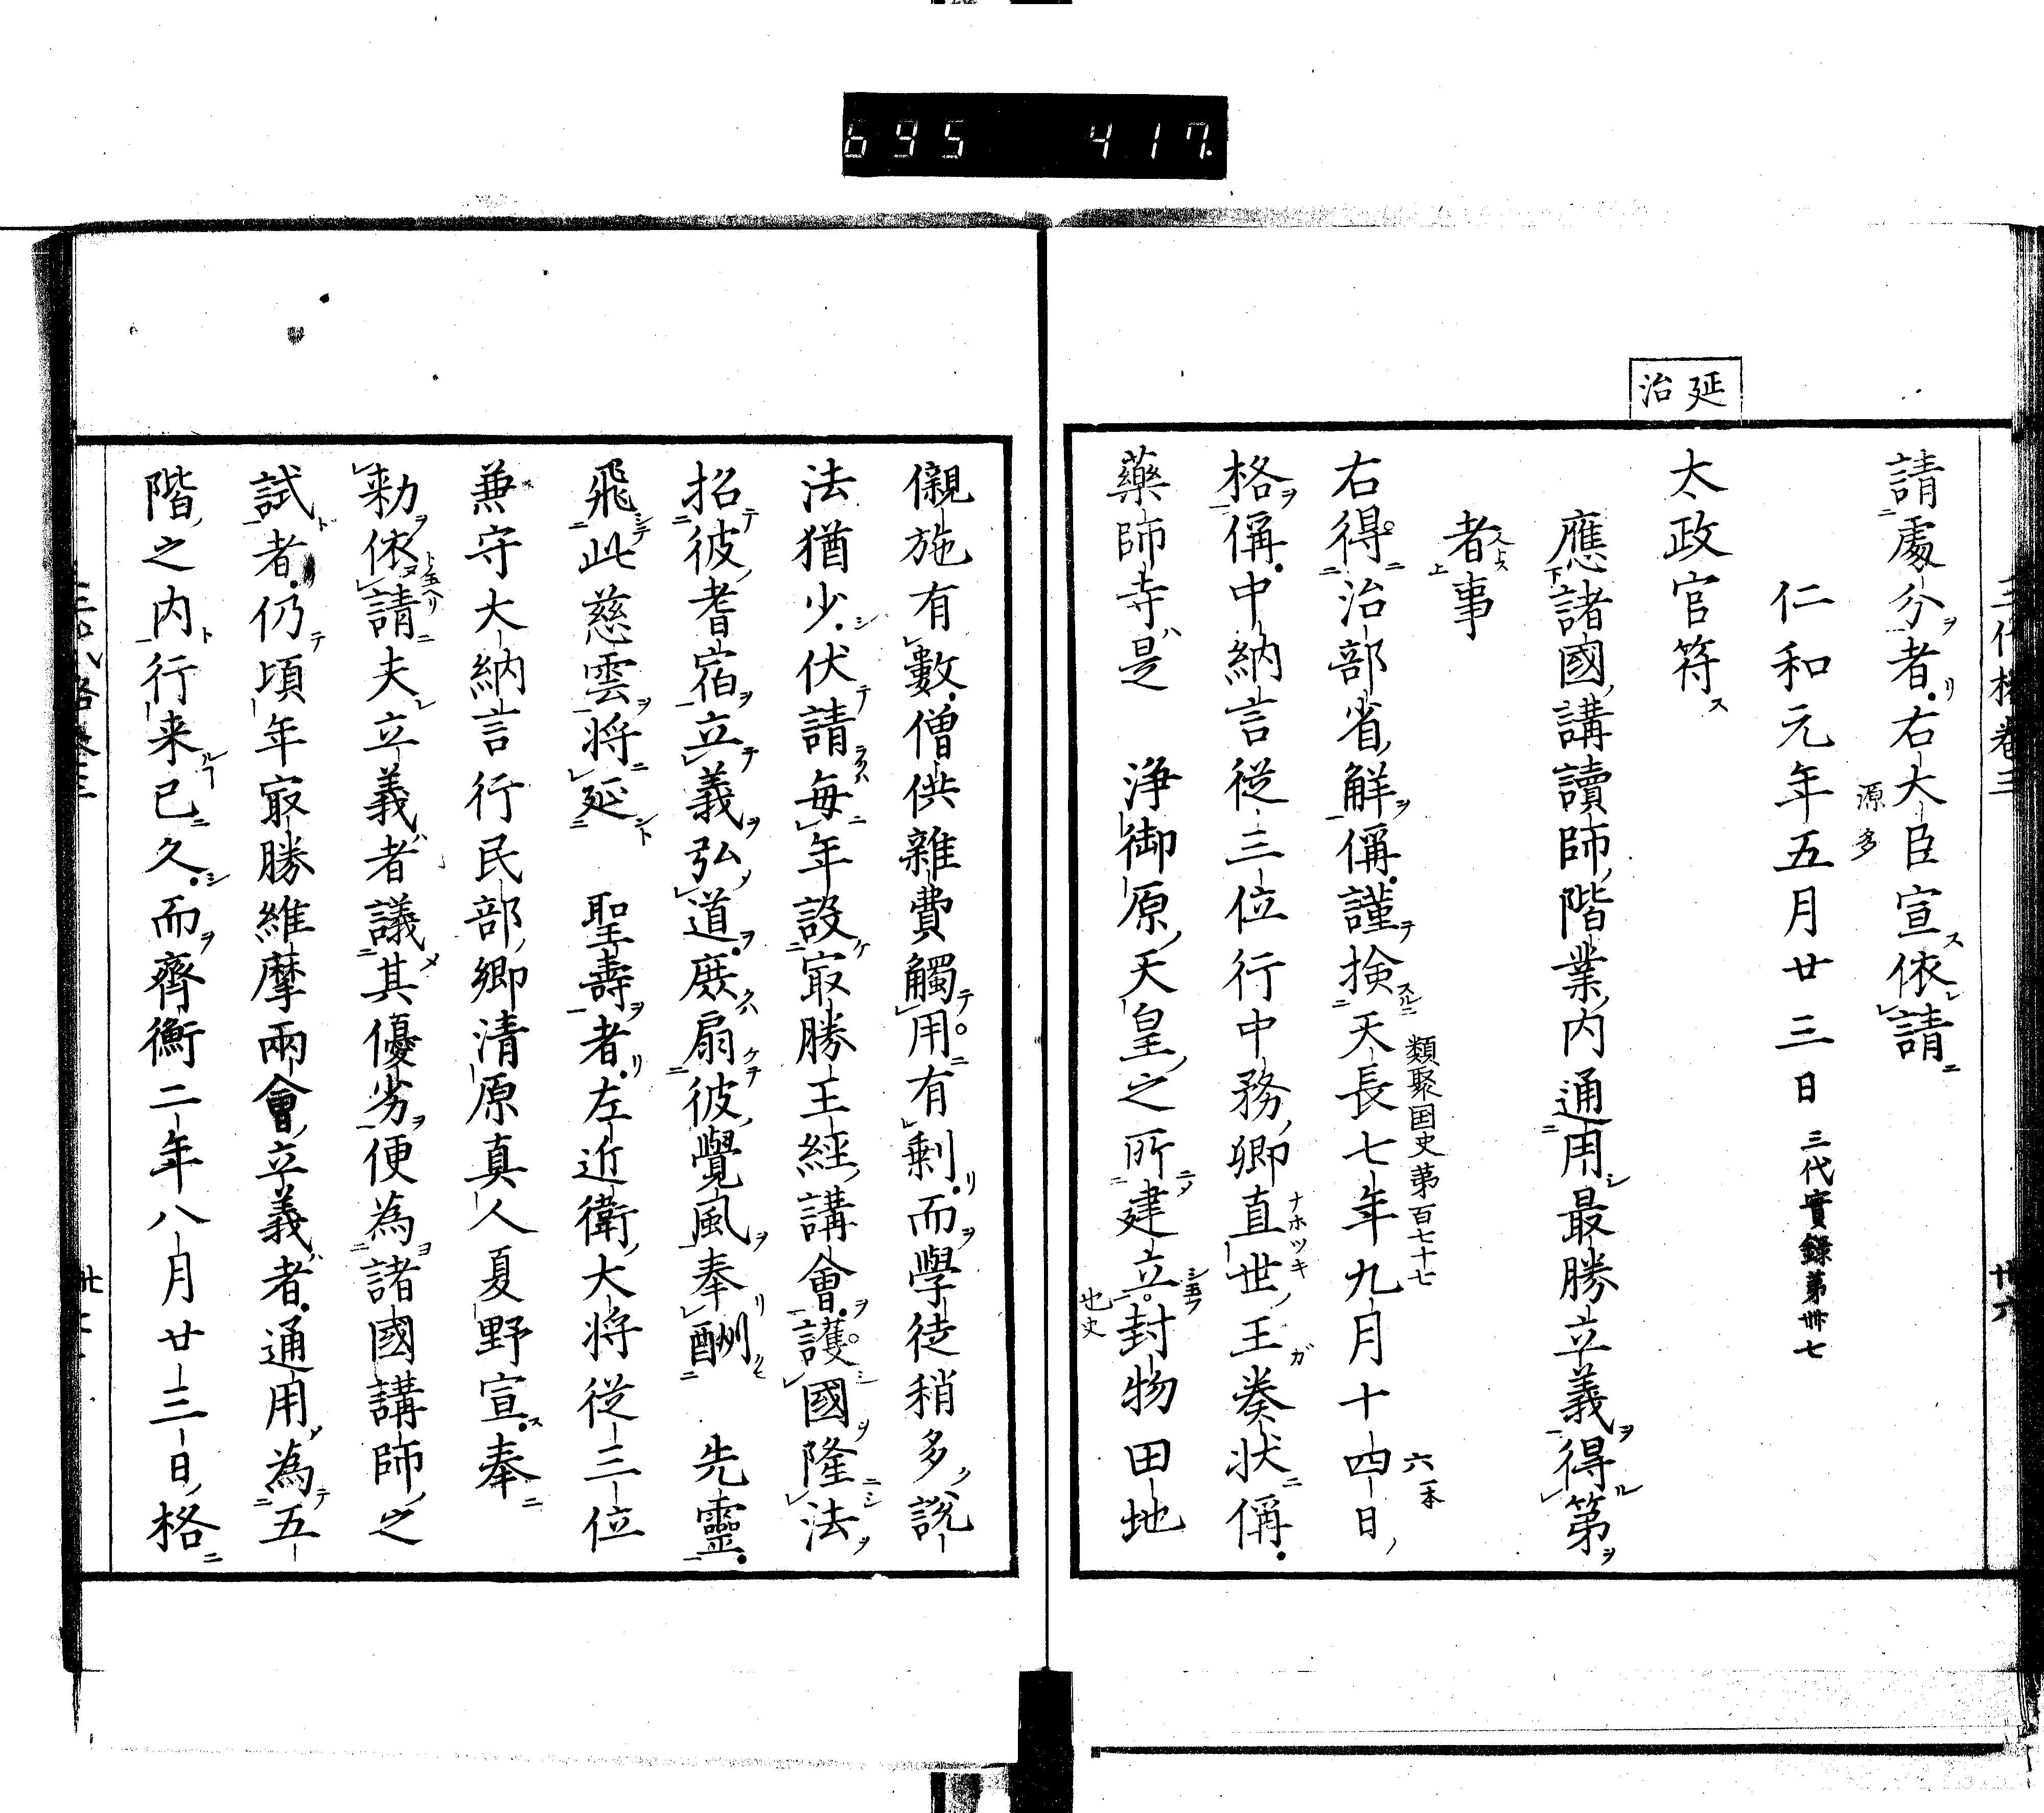 695 417
延治
請處分者右大臣宣依請
源多
仁和元年五月廿三日 三代實録第卌七
太政官符
應諸國講讀師階業内通用最勝立義得第
者事
類聚国史第百七十七
右得治部省解偁謹撿天長七年九月十四日
六一本
格偁中納言從三位行中務卿直世王奏状偁
ナホツキ
藥師寺是 浄御原天皇之所建立封物田地
也史
儭施有數僧供雜費觸用有剰而學徒稍多説
法猶少伏請毎年設㝡勝王經講會護國隆法
招彼耆宿立義弘道庶扇彼覺風奉酬 先靈
飛此慈雲將延 聖壽者左近衛大将從三位
兼守大納言行民部卿清原真人夏野宣奉
勅依請夫立義者議其優劣便為諸國講師之
試者仍頃年㝡勝維摩兩會立義者通用為五
階之内行来已久而齊衡二年八月廿三日格